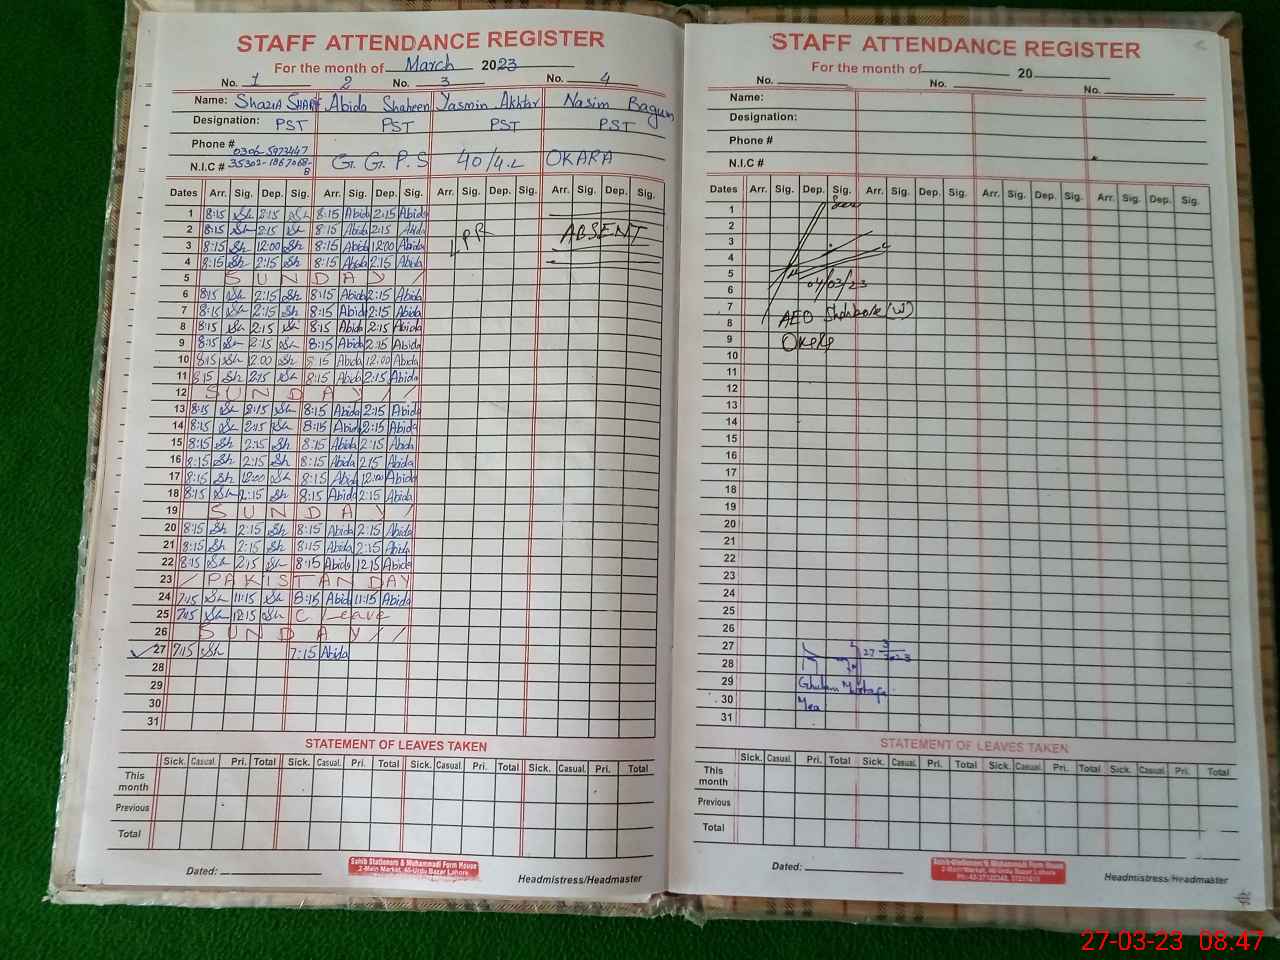 STAFF ATTENDANCE REGISTER
For the month of March 2023
No. 1 2 No. 3 No. 4
Name: Shazia Sharif Abida Shaheen Yasmin Akhtar Nasim Bagum
Designation: PST PST PST PST
Phone # 0306-5973447
N.I.C # 35302-1867068-8 G.G.P.S 40/4.L OKARA
Dates Arr. Sig. Dep. Sig. Arr. Sig. Dep. Sig. Arr. Sig. Dep. Sig. Arr. Sig. Dep. Sig.
1 8:15 Sh 2:15 Sh 8:15 Abida 2:15 Abida
2 8:15 Sh 2:15 Sh 8:15 Abida 2:15 Abida LPR ABSENT
3 8:15 Sh 12:00 Sh 8:15 Abida 12:00 Abida
4 8:15 Sh 2:15 Sh 8:15 Abida 2:15 Abida
5 SUNDAY
6 8:15 Sh 2:15 Sh 8:15 Abida 2:15 Abida
7 8:15 Sh 2:15 Sh 8:15 Abida 2:15 Abida
8 8:15 Sh 2:15 Sh 8:15 Abida 2:15 Abida
9 8:15 Sh 2:15 Sh 8:15 Abida 2:15 Abida
10 8:15 Sh 12:00 Sh 8:15 Abida 12:00 Abida
11 8:15 Sh 2:15 Sh 8:15 Abida 2:15 Abida
12 SUNDAY
13 8:15 Sh 2:15 Sh 8:15 Abida 2:15 Abida
14 8:15 Sh 2:15 Sh 8:15 Abida 2:15 Abida
15 8:15 Sh 2:15 Sh 8:15 Abida 2:15 Abida
16 8:15 Sh 2:15 Sh 8:15 Abida 2:15 Abida
17 8:15 Sh 12:00 Sh 8:15 Abida 12:00 Abida
18 8:15 Sh 2:15 Sh 8:15 Abida 2:15 Abida
19 SUNDAY
20 8:15 Sh 2:15 Sh 8:15 Abida 2:15 Abida
21 8:15 Sh 2:15 Sh 8:15 Abida 2:15 Abida
22 8:15 Sh 2:15 Sh 8:15 Abida 12:15 Abida
23 PAKISTAN DAY
24 7:45 Sh 11:15 Sh 8:15 Abida 11:15 Abida
25 7:45 Sh 12:15 Sh C leave
26 SUNDAY
27 7:15 Sh 7:15 Abida
28
29
30
31
STATEMENT OF LEAVES TAKEN
Sick. Casual. Pri. Total Sick. Casual. Pri. Total Sick. Casual. Pri. Total Sick. Casual. Pri. Total
This month
Previous
Total
Dated:
Sahib Stationers & Muhammadi Form House
2-Main Market, 40-Urdu Bazar Lahore
Headmistress/Headmaster
STAFF ATTENDANCE REGISTER
For the month of 20
No. No. No.
Name:
Designation:
Phone #
N.I.C #
Dates Arr. Sig. Dep. Sig. Arr. Sig. Dep. Sig. Arr. Sig. Dep. Sig. Arr. Sig. Dep. Sig.
1
2
3
4
5
6 04/03/23
7
8 AEO Shahbore (W)
9 Okara
10
11
12
13
14
15
16
17
18
19
20
21
22
23
24
25
26
27 27 3 2023
28
29 Ghulam Mustafa
30 Mea
31
STATEMENT OF LEAVES TAKEN
Sick. Casual. Pri. Total Sick. Casual. Pri. Total Sick. Casual. Pri. Total Sick. Casual. Pri. Total
This month
Previous
Total
Dated:
Sahib Stationers & Muhammadi Form House
2-Main Market, 40-Urdu Bazar Lahore
Headmistress/Headmaster
27-03-23 08:47